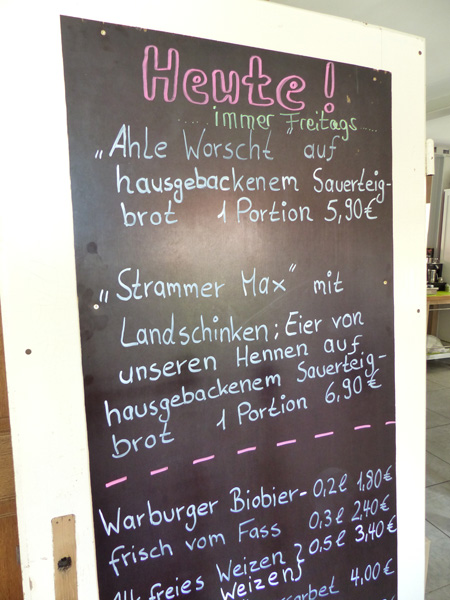 Heute!
immer Freitags
„Ahle Worscht" auf
hausgebackenem Sauerteig-
brot 1 Portion 5,90€
„Strammer Max" mit
Landschinken; Eier von
unseren Hennen auf
hausgebackenem Sauerteig-
brot 1 Portion 6,90€
Warburger Biobier- 0,2l 1,80€
frisch vom Fass 0,3l 2,40€
freies Weizen } 0,5l 3,40€
Weizen
4,00€